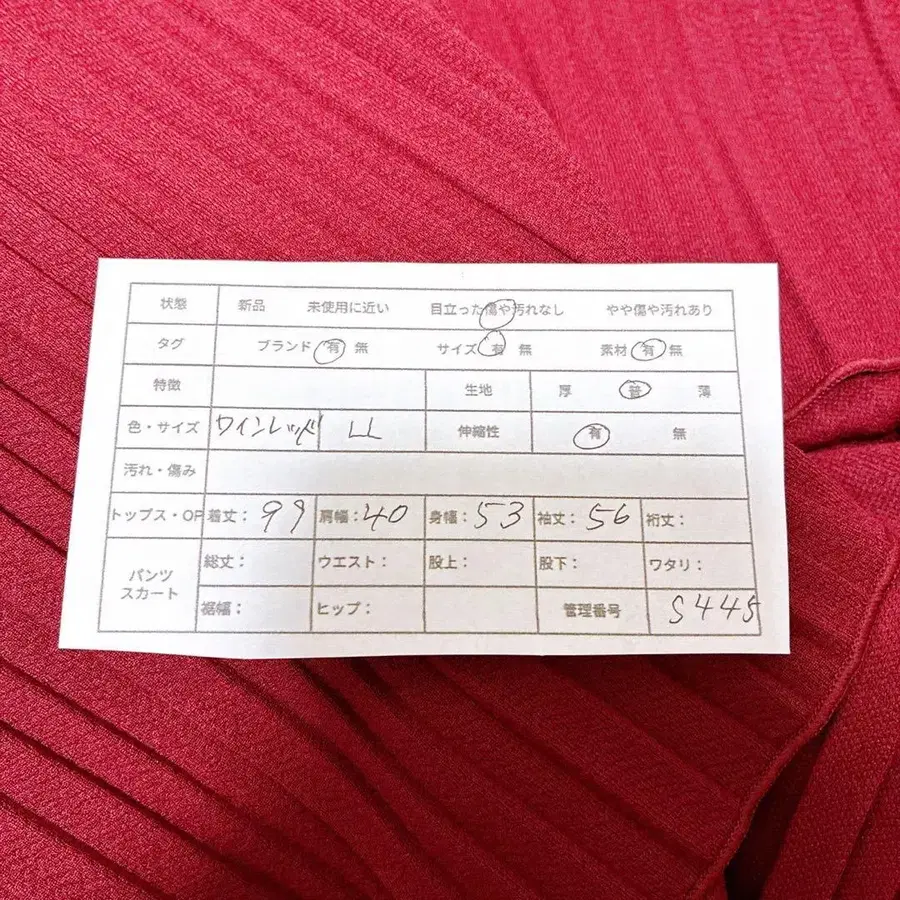 状態 新品 未使用に近い 目立った傷や汚れなし やや傷や汚れあり
タグ ブランド 有 無 サイズ 有 無 素材 有 無
特徴 生地 厚 普 薄
色・サイズ ワインレッド LL 伸縮性 有 無
汚れ・傷み
トップス・OP 着丈：99 肩幅：40 身幅：53 袖丈：56 裄丈：
パンツ スカート
総丈： ウエスト： 股上： 股下： ワタリ：
裾幅： ヒップ： 管理番号 S445